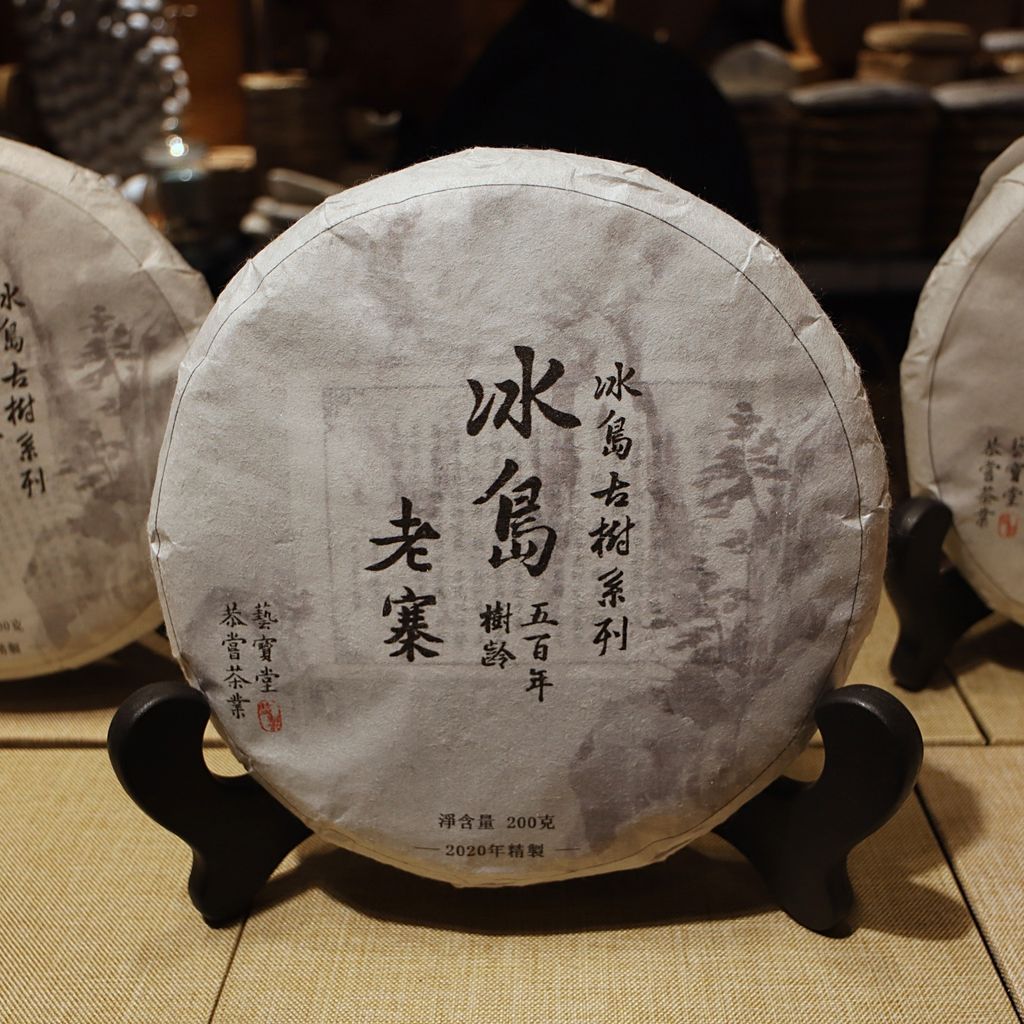 冰島古樹系列
冰島
五百年
樹齡
老寨
藝寶堂
恭嘗茶業
淨含量 200克
2020年精製
冰島古樹系列
00克
精製
藝寶堂
恭嘗茶業